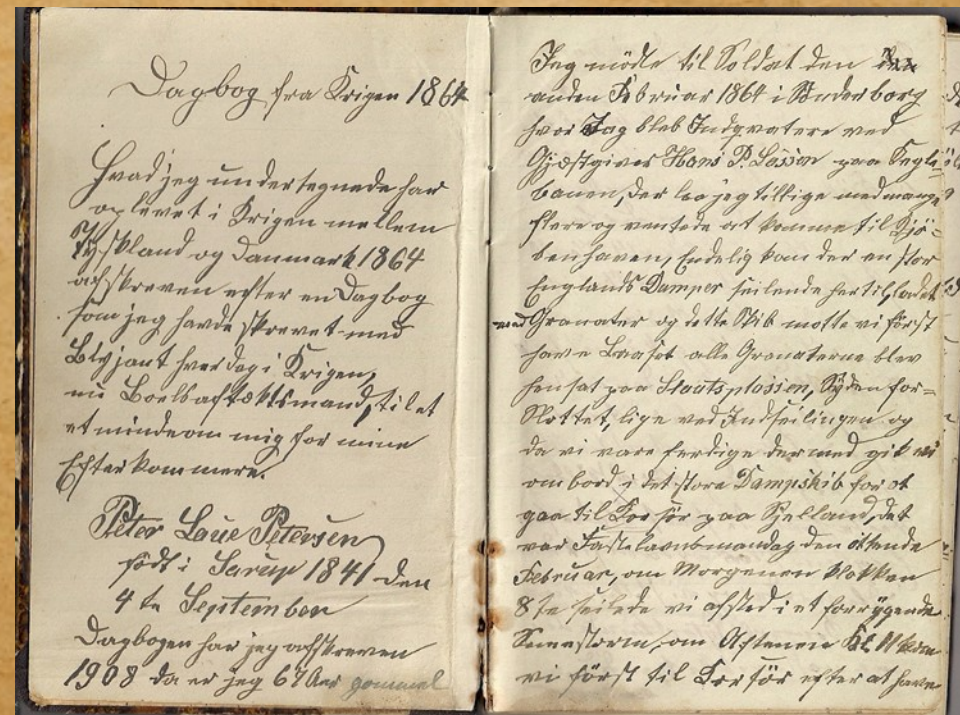 Dagbog fra Krigen 1864
Hvad jeg undertegnede har
oplevet i Krigen mellem
Tyskland og Danmark 1864
afskreven efter en Dagbog
som jeg havde skrevet med
Blyjant hver dag i Krigen,
nu Boelsaftægtsmand, til et
et minde om mig for mine
Efterkommere.
Peter Laue Petersen
födt i Sarup 1841 den
4 te September
Dagbogen har jeg afskreven
1908 da er jeg 67 Aar gammel
Jeg mödte til Soldat den
anden Februar 1864 i Sönderborg
hvor Jag bleb Indqvatere ved
Gjæstgiver Hans P. Lassen paa
banen, der laa jeg tillige med mange
flere og ventede at komme til Kjö-
benhaven, Endelig kom der en stor
Englands Damper seilende hertil, ladet
med Granater og dette Skib motte vi först
have Laaset alle Granaterne blev
hensat paa Slautsplassen, Syden for-
Slottet, lige ved Indseilingen og
da vi vare ferdige dermed gik vi
om bord i det store Dampskib for at
gaa til Korsör paa Sjelland, det
var Fastelavnsmandag den ottende
Februar, om Morgenen Klokken
8 te seilede vi afsted i et forrygende
Snæestorm, om Aftenen Kl. 11 kom
vi först til Korsör efter at have